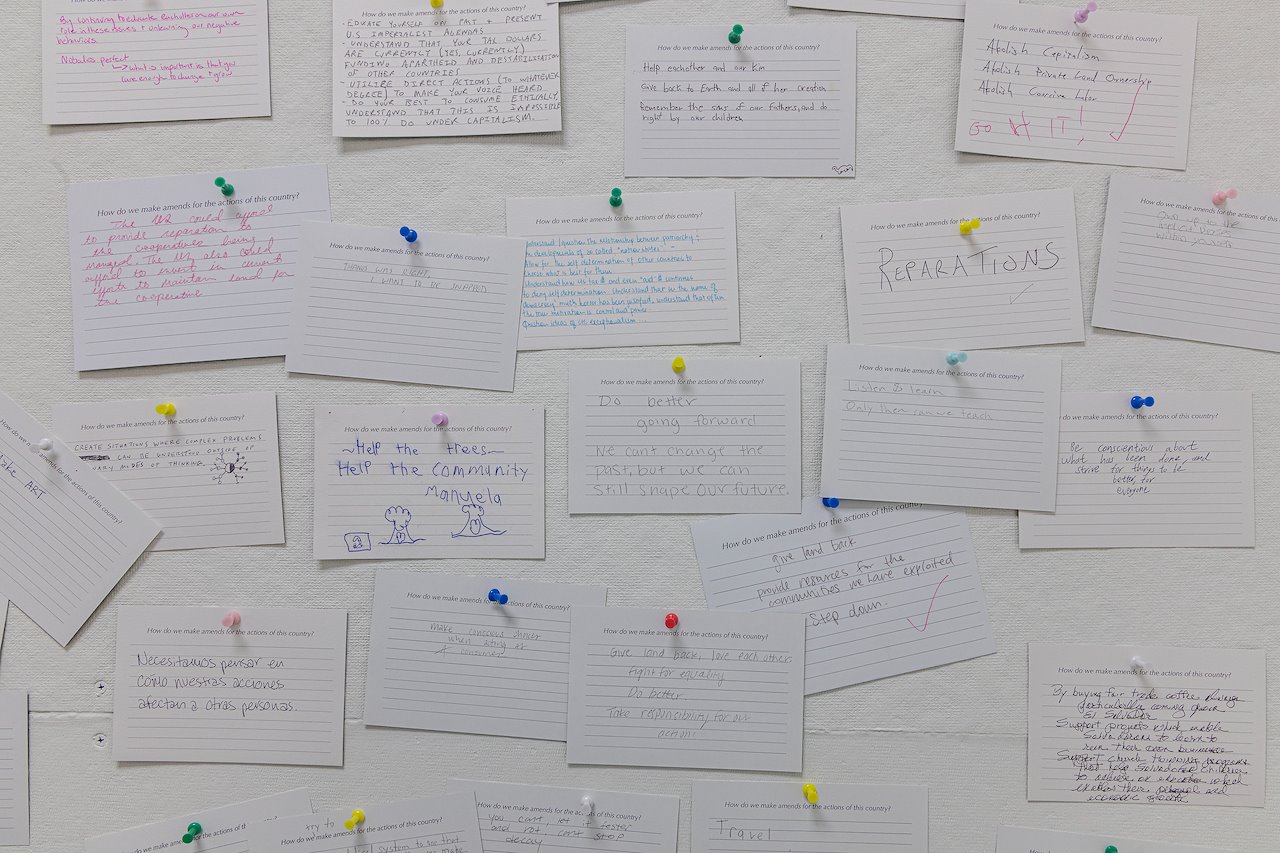 By continuing to educate each other on our own
role in these issues + unlearning our negative
behaviors.
Nobody is perfect
what is important is that you
care enough to change + grow
How do we make amends for the actions of this country?
- EDUCATE YOURSELF ON PAST & PRESENT
U.S IMPERIALIST AGENDAS
- UNDERSTAND THAT YOUR TAX DOLLARS
ARE CURRENTLY (YES, CURRENTLY)
FUNDING APARTHEID AND DESTABILIZATION
OF OTHER COUNTRIES
- UTILIZE DIRECT ACTIONS (TO WHATEVER
DEGREE) TO MAKE YOUR VOICE HEARD
- DO YOUR BEST TO CONSUME ETHICALLY,
UNDERSTAND THAT THIS IS IMPOSSIBLE
TO 100% DO UNDER CAPITALISM.
How do we make amends for the actions of this country?
Help eachother and our kin
Give back to Earth and all of her creation
Remember the sins of our fathers, and do
right by our children
How do we make amends for the actions of this country?
Abolish Capitalism
Abolish Private Land Ownership
Abolish Coercive Labor
GO AT IT!
How do we make amends for the actions of this country?
The US could afford
to provide reparation to
the cooperatives being
managed. The US also could
afford to invest in
efforts to maintain land for
the cooperative
How do we make amends for the actions of this country?
THANOS WAS RIGHT.
I WANT TO BE SNAPPED
How do we make amends for the actions of this country?
Understand/question the relationship between patriarchy &
the developments of so called "nation states"
Allow for the self determination of other countries to
choose what is best for them
Understand how US tax $ and even "aid" $ continues
to deny self determination. Understand that in the name of
democracy much horror has been justified, understand that often
the true motivation is control and power
Question ideas of US exceptionalism...
How do we make amends for the actions of this country?
REPARATIONS
How do we make amends for the actions of this country?
Own up to the
within yourself
How do we make amends for the actions of this country?
ART
How do we make amends for the actions of this country?
CREATE SITUATIONS WHERE COMPLEX PROBLEMS
CAN BE UNDERSTOOD OUTSIDE OF
MODES OF THINKING.
How do we make amends for the actions of this country?
~Help the trees~
Help the community
Manuela
How do we make amends for the actions of this country?
Do better
going forward
We cant change the
past, but we can
still shape our future.
How do we make amends for the actions of this country?
Listen & learn
Only then can we teach
How do we make amends for the actions of this country?
Be conscientious about
what has been done, and
strive for things to be
better for
everyone
How do we make amends for the actions of this country?
give land back
provide resources for the
communities we have exploited
step down.
How do we make amends for the actions of this country?
Necesitamos pensar en
cómo nuestras acciones
afectan a otras personas.
How do we make amends for the actions of this country?
Make conscious choices
when
consumer
How do we make amends for the actions of this country?
Give land back, love each other,
Fight for equality
Do better.
Take responsibility for our
action!
How do we make amends for the actions of this country?
By buying fair trade coffee
particularly coming from
El Salvador
Support projects which enable
Salvadorans to learn to
run their own businesses
Support church programs
that help Salvadoran children
to
their personal and
economic
How do we make amends for the actions of this country?
How do we make amends for the actions of this country?
try to
system to see that
How do we make amends for the actions of this country?
You can't let it fester
and rot, can't stop
decay
How do we make amends for the actions of this country?
Travel
How do we make amends for the actions of this country?